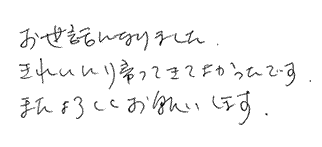 お世話になりました.
きれいになり帰ってきてよかったです.
またよろしくお願いします.